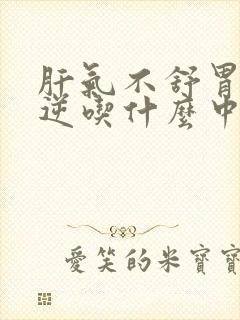 肝氣不舒胃
逆喫什麼中
愛笑的米寶寶